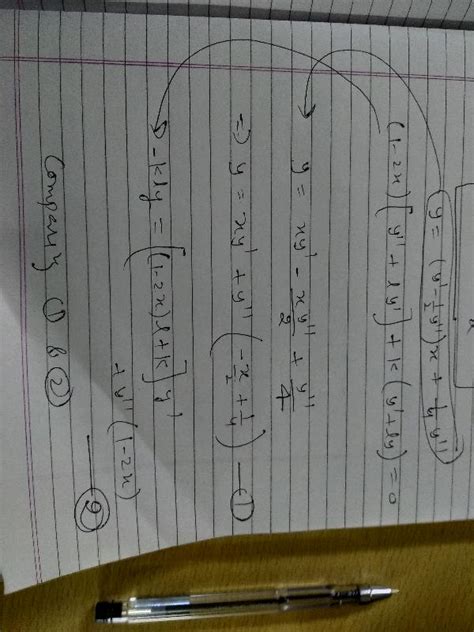 y = (y' - 1/2 y'')x + 1/4 y''
(1-2x) [y'' + ly'] + k (y'+ly) = 0
y = xy' - x/2 y'' + y''/4
⇒ y = xy' + y'' (-x/2 + 1/4) — ①
-kly = [(1-2x)l+k] y'
+ y'' (1-2x) — ②
Comparing ① & ②